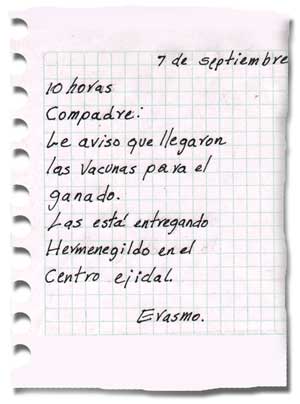 7 de septiembre
10 horas
Compadre:
Le aviso que llegaron
las vacunas para el
ganado.
Las está entregando
Hermenegildo en el
Centro ejidal.
Erasmo.